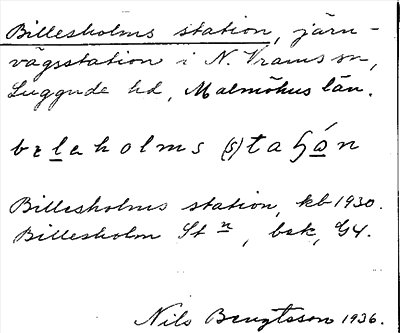 Billesholms station, järn-
vägsstation i N. Vrams sn,
Luggude hd, Malmöhus län.
Billesholms station, kb 1930.
Billesholm St n, bsk, G4.
Nils Bengtsson 1936.